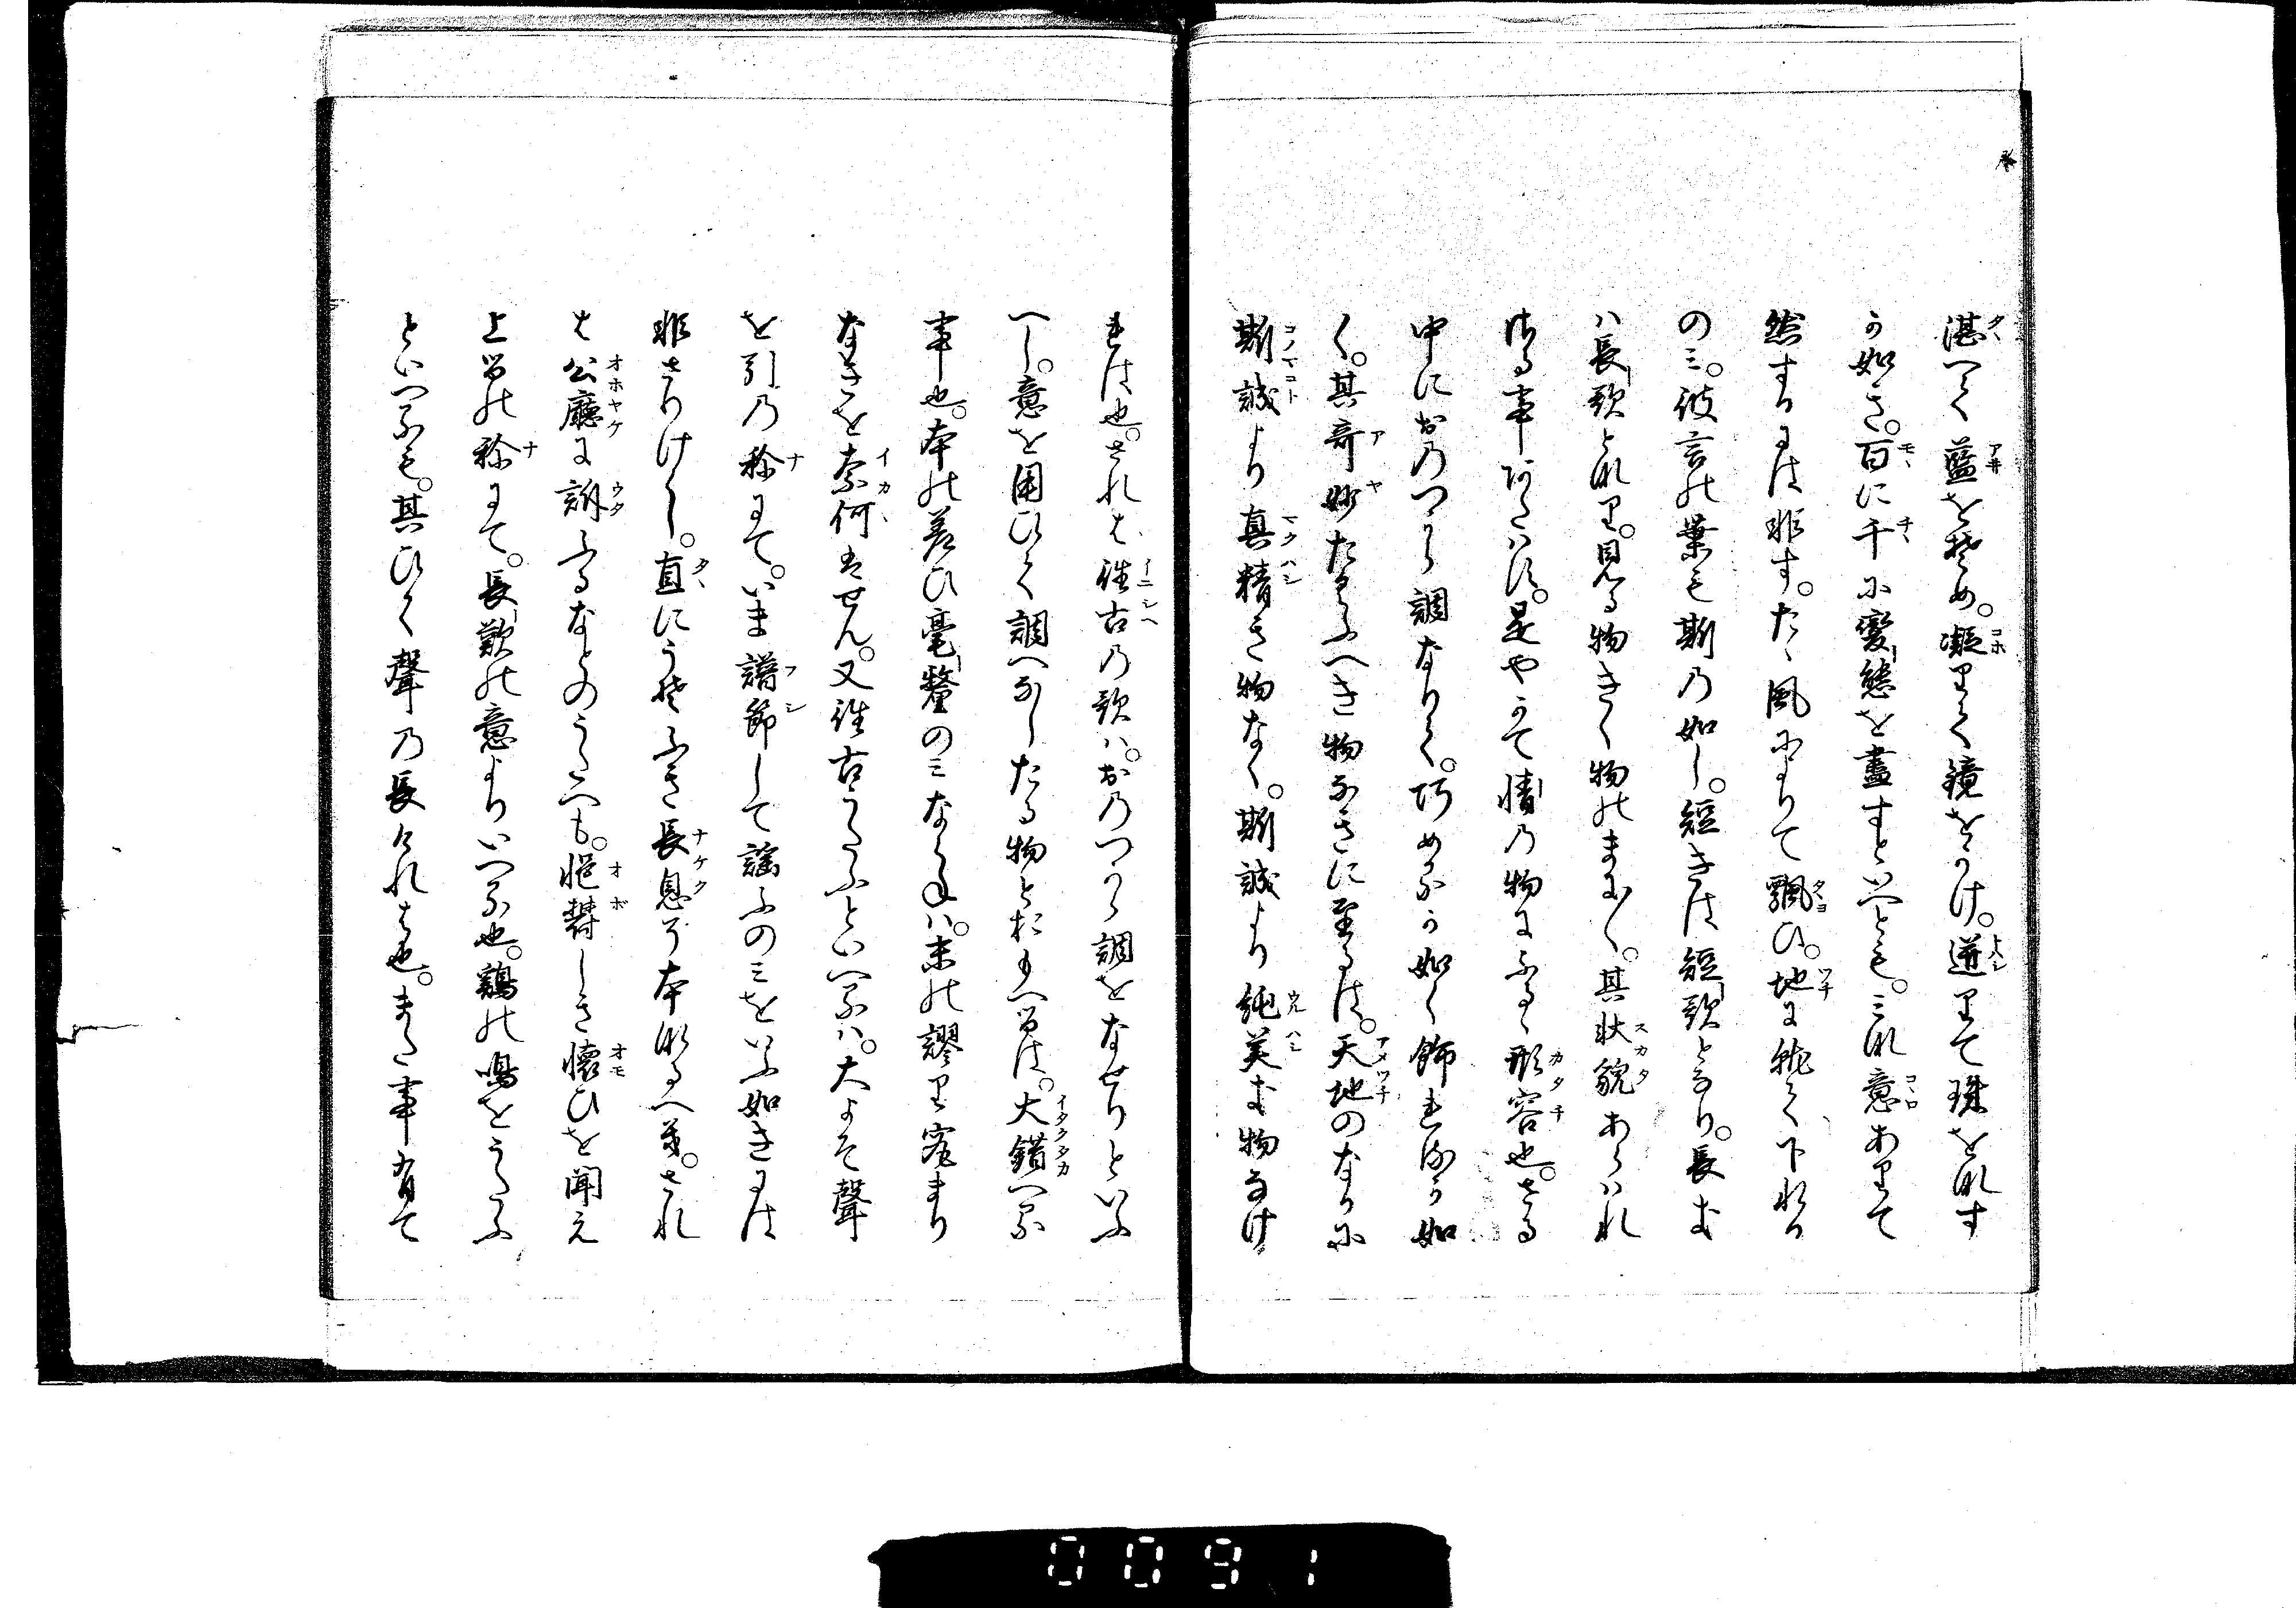 湛へて藍を染め。凝りて鏡をかけ。迸りて珠をなす
か如き。百に千に變態を盡すといへとも。これ意ありて
然するには非す。たゝ風によりて飄ひ。地に就て下れる
のミ。彼言の葉も斯の如し。短きは短歌となり。長き
ハ長歌となり。見る物きく物のまに〱。其状貌あらハれ
さる事あたハす。是やかて情の物にふるゝ形容也。さる
中におのつから調なりて。巧めるか如く飾れるか如
く。其奇妙たとふへき物なきに至るは。天地のなかに
斯誠より真精き物なく。斯誠より純美き物なけ
れは也。されは往古の歌ハ。おのつから調をなせりといふ
へし。意を用ひて調へなしたる物とおもへるは。大錯へる
事也。本の差ひ毫釐のミなくもハ。末の謬り窕まり
なきを奈何はせん。又往古うたふといへるハ。大よそ聲
を引の稱にて。いま譜節して謡ふのミをいふ如きには
非さりけり。直にうそふき長息そ本なるへき。され
は公廳に訴ふるなとのうたへも。悒鬱しき懐ひを聞え
上るの稱にて。長歎の意よりいへる也。鶏の鳴をうたふ
といへるも。其ひく聲の長けれは也。また事有て
0091